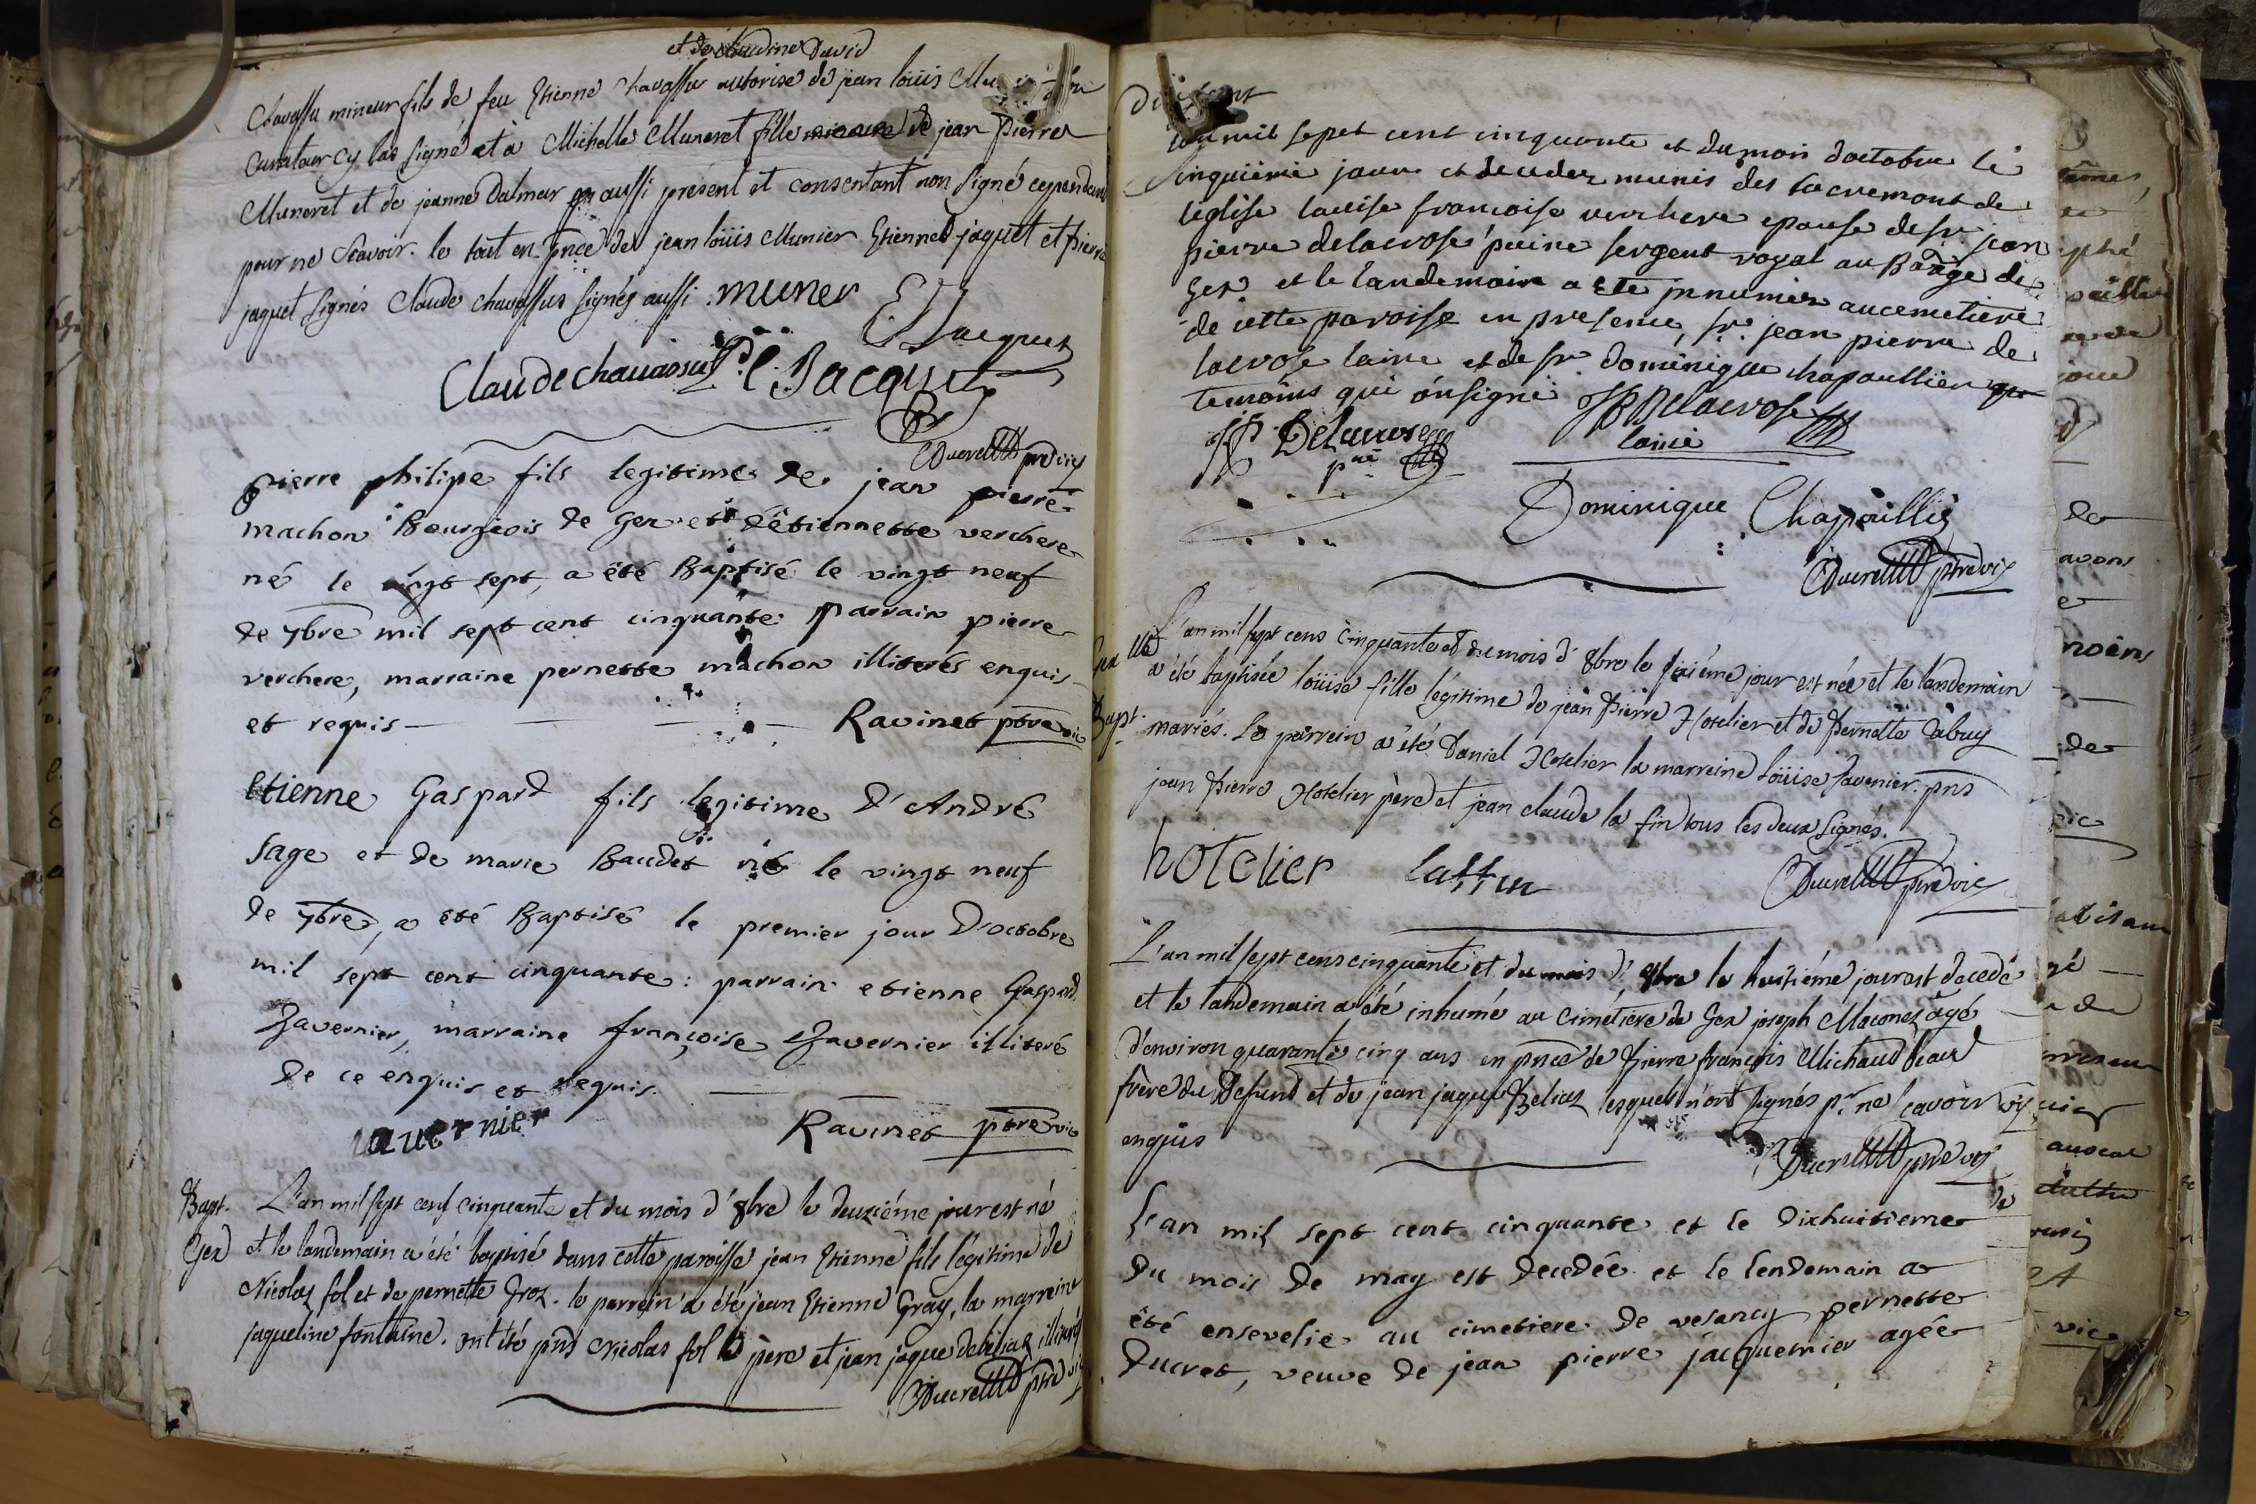 et de claudine David
Chavassu mineur fils de feu Etienne Chavassu autorisé de jean loüis
Curateur cy bas signé et à Michelle Muneret fille mineure de jean Pierre
Muneret et de jeanne Dalmar aussi present et consentant non signé cependant
pour ne Scavoir. le tout en pnce de jean loüis Munier Etienne jaquet et pierre
jaquet signés Claude chavassus signés aussi. muner
E Jacquet
Claude chauassu P. C. Jacquet
Ducret ptre vic
pierre philipe fils legitime de jean pierre
machon Bourgeois de Gex et d'êtiennette verchere
né le vingt sept, a êté Baptisé le vingt neuf
de 7bre mil sept cent cinquante parrain pierre
verchere, marraine pernette machon illiterés enquis
et requis Ravinet ptre vic
Etienne Gaspard fils legitime D'André
Sage et de marie Baudet né le vingt neuf
de 7bre, a été Baptisé le premier jour D'octobre
mil sept cent cinquante: parrain etienne Gaspard
Zavernier, marraine françoise Zavernier illiteré
de ce enquis et requis.
iauernier Ravinet ptre vic
Bapt. L'an mil sept cens cinquante et du mois d'8bre le deuxiéme jour est né
Gex et le landemain a été baptisé dans cette paroisse jean Etienne fils légitime de
Nicolas fol et de pernette Gros. le parrein a été jean Etienne Gray, la marreine
jaqueline fontaine. ont été pns Nicolas fol père et jean jaque illiterés
Ducret ptre vic
L'an mil sept cent cinquante et du mois doctobre le
cinquiéme jour et decedez munis des sacremont de
leglise louise francoise verchere epouse de sr. jean
pierre delacrose' puine sergent royal au Baage de
Gex et le landemain a ete jnnumer aucemetiere
de cette paroise en presence, sr. jean pierre de
lacrose laine et de sr. dominique chapoullier
temoins qui onsigné JP Delacrose
JP Delacrose laine
pné
Dominique Chapoullié
Ducret ptre vic
Gex L'an mil sept cens cinquante et du mois d'8bre le sixiéme jour est née et le landemain
a été baptisée loüise fille légitime de jean Pierre Hotelier et de Pernette Dabuy
Bapt. mariés. Le parrein a été Daniel Hotelier la marreine Loüise Tavernier. pns
jean Pierre Hotelier père et jean claude la fin tous les deux signés.
hotelier laffin Ducret ptre vic
L'an mil sept cens cinquante et du mois d'8bre le huitiéme jour est decedé
et le landemain a été inhumé au Cimetiere de Gex joseph Maconex âgé
d'environ quarante cinq ans en pnce de Pierre françois Michaud beau
frère du Defunt et de jean jaque Belias lesquels n'ont signés pr. ne sçavoir
enquis Ducret ptre vic
L'an mil sept cent cinquante et le Dixhuitieme
Du mois De may est decedée et le lendemain a
êté ensevelie au cimetiere de vesancy pernette
Ducret, veuve de jean pierre jacquemier agée